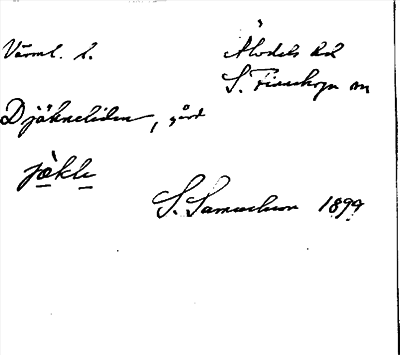 Värml. l. Älvdals hd
S. Finnskoga sn
Djäkneliden, gård
jäkle
S. Samuelsson 1899